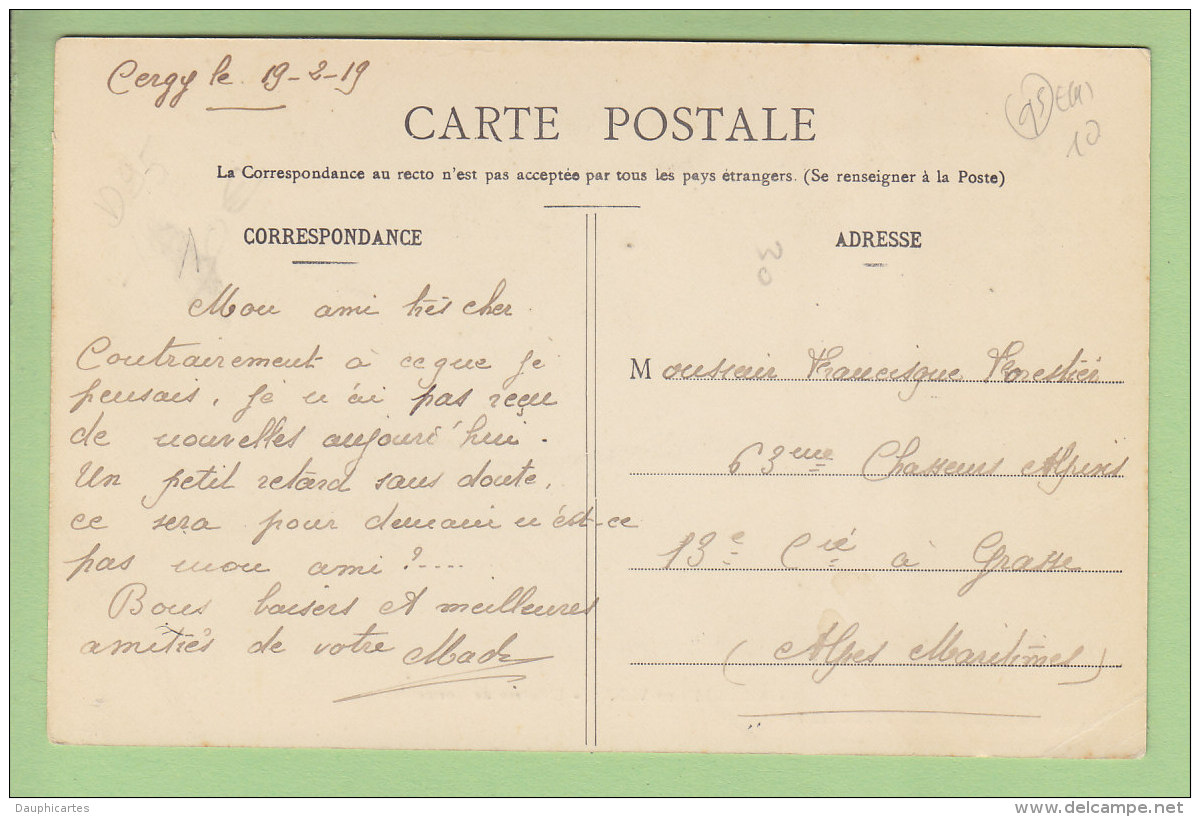 Cergy le 19-2-19
CARTE POSTALE
La Correspondance au recto n'est pas acceptée par tous les pays étrangers. (Se renseigner à la Poste)
CORRESPONDANCE
Mon ami très cher
Contrairement à ce que je
pensais, je n'ai pas reçu
de nouvelles aujourd'hui.
Un petit retard sans doute,
ce sera pour demain n'est-ce
pas mon ami ?....
Bons baisers et meilleures
amitiés de votre Mado
ADRESSE
Monsieur Francisque Forestier
63eme Chasseurs Alpins
13e Cie à Grasse
(Alpes Maritimes)
95
10
30
D95
Dauphicartes
delcampe.net